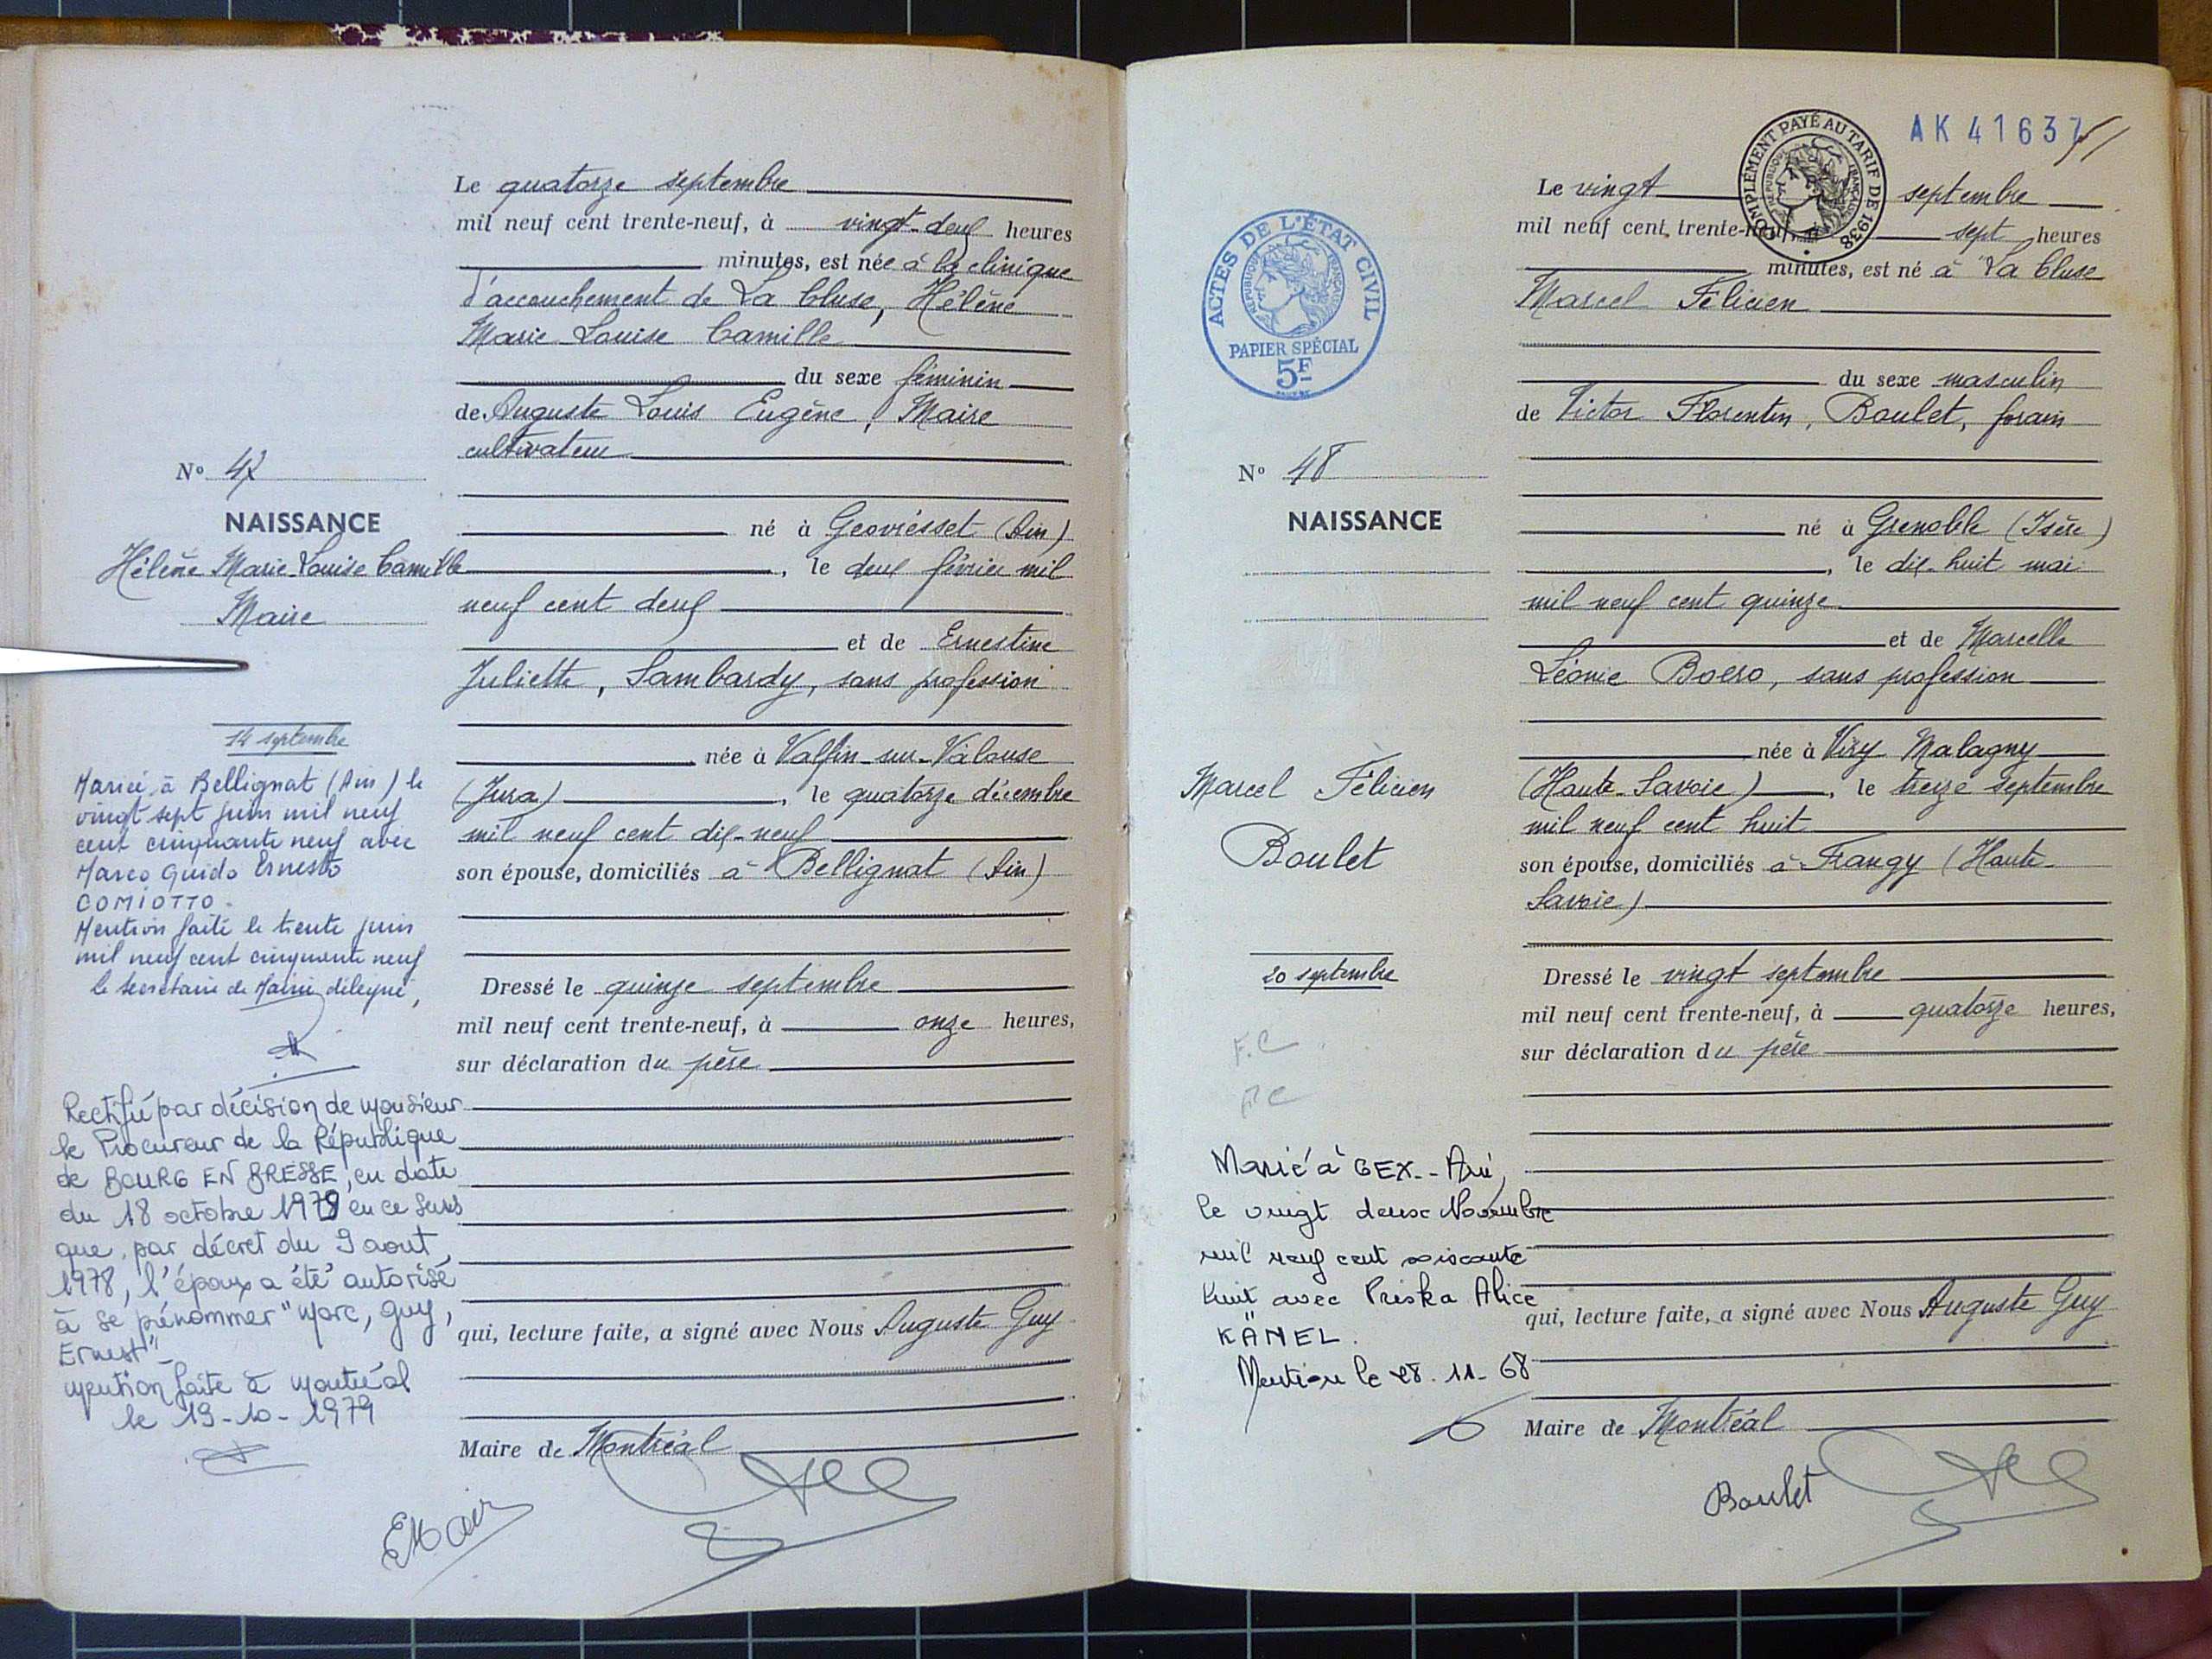 Le quatorze septembre
mil neuf cent trente-neuf, à vingt-deux heures
minutes, est née à la clinique
d'accouchement de La Cluse, Hélène
Marie Louise Camille
du sexe féminin
de Auguste Louis Eugène, Maire
cultivateur
né à Geovrésset (Ain)
, le deux février mil
neuf cent deux
et de Ernestine
Juliette, Lambardy, sans profession
née à Valfin-sur-Valouse
(Jura) , le quatorze décembre
mil neuf cent dix-neuf
son épouse, domiciliés à Bellignat (Ain)
Dressé le quinze septembre
mil neuf cent trente-neuf, à onze heures,
sur déclaration du père
qui, lecture faite, a signé avec Nous Auguste Guy
Maire de Montréal
EMaire
N° 47
NAISSANCE
Hélène Marie-Louise Camille
Maire
14 septembre
Mariée à Bellignat (Ain) le
vingt sept juin mil neuf
cent cinquante neuf avec
Marco Guido Ernesto
COMIOTTO.
Mention faite le trente juin
mil neuf cent cinquante neuf
le secrétaire de Mairie délégué,
Rectifié par décision de monsieur
le Procureur de la République
de BOURG EN BRESSE, en date
du 18 octobre 1979 en ce sens
que, par décret du 9 aout
1978, l'époux a été autorisé
à se prénommer "Marc, Guy,
Ernest"
mention faite à Montréal
le 19-10-1979
AK 41637
COMPLÉMENT PAYÉ AU TARIF DE 1938
RÉPUBLIQUE FRANÇAISE
Le vingt septembre
mil neuf cent trente-neuf, à sept heures
minutes, est né à La Cluse
Marcel Félicien
du sexe masculin
de Victor Florentin, Boulet, forain
né à Grenoble (Isère)
, le dix-huit mai
mil neuf cent quinze
et de Marcelle
Léonie Boero, sans profession
née à Viry Malagny
(Haute-Savoie) , le treize septembre
mil neuf cent huit
son épouse, domiciliés à Frangy (Haute-
Savoie)
Dressé le vingt septembre
mil neuf cent trente-neuf, à quatorze heures,
sur déclaration du père
qui, lecture faite, a signé avec Nous Auguste Guy
Maire de Montréal
Boulet
ACTES DE L'ÉTAT CIVIL
RÉPUBLIQUE FRANÇAISE
PAPIER SPÉCIAL
5F
N° 48
NAISSANCE
Marcel Félicien
Boulet
20 septembre
F.C
F C
Marié à GEX -- Ain,
le vingt deux Novembre
mil neuf cent soixante
huit avec Priska Alice
KÄMEL.
Mention le 28.11-68